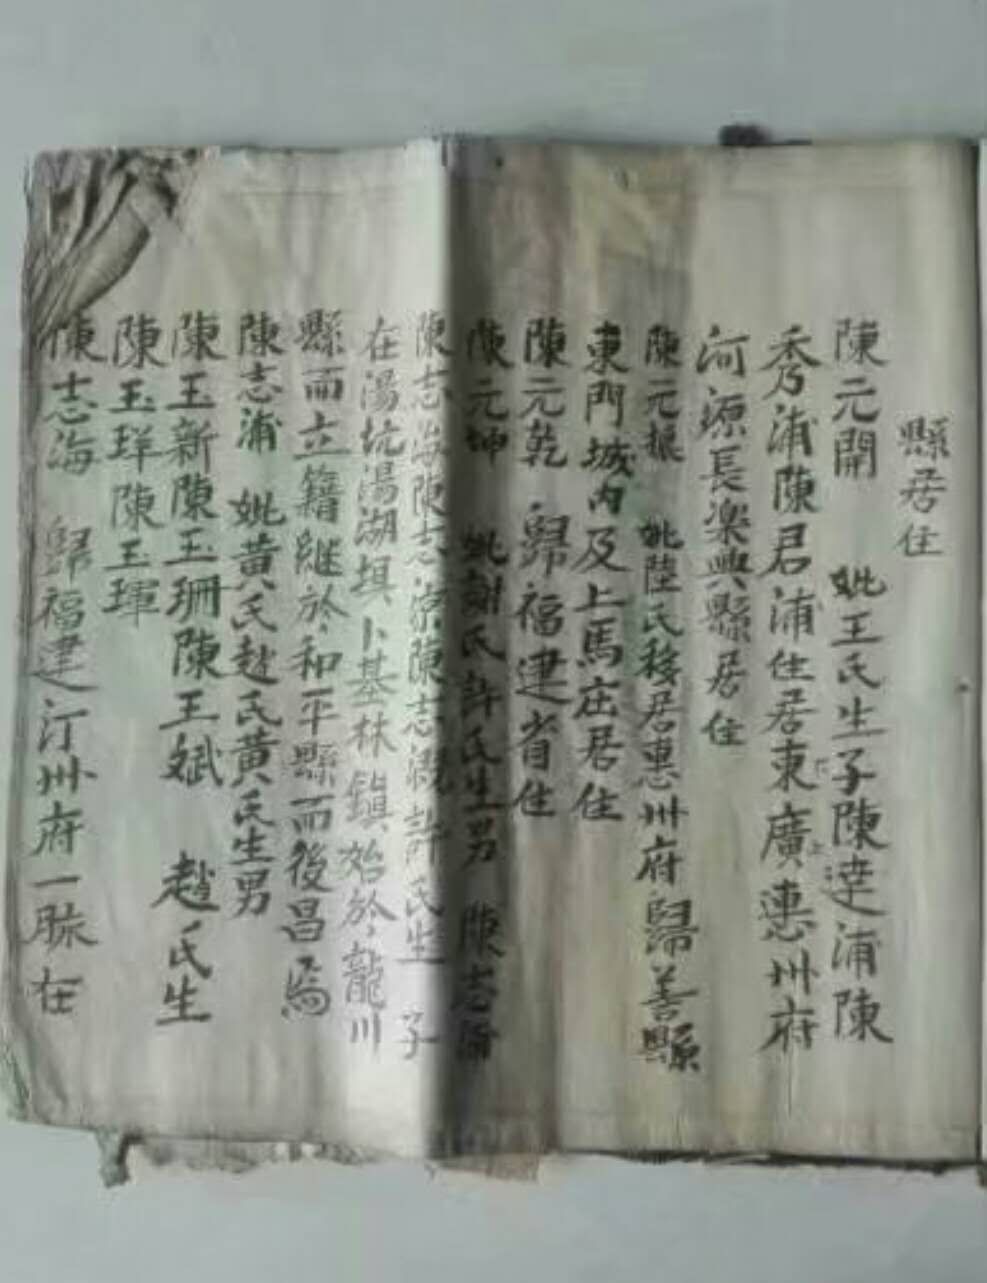 縣居住
陳元開 妣王氏生子陳達浦陳
秀浦陳君浦住居東廣惠州府
河源長楽興縣居住
陳元振 妣陸氏移居惠州府歸善縣
東門城内及上馬庄居住
陳元乾 歸福建省住
陳元坤 妣謝氏許氏生男 陳志浦
陳志海陳志源陳志 許氏生 子
在湯坑湯湖埧卜基林鎮始於龍川
縣而立籍継於和平縣而後昌焉
陳志浦 妣黄氏赵氏黄氏生男
陳玉新陳玉珊陳玉斌 趙氏生
陳玉珜陳玉琿
陳志海 歸福建汀州府一脉在